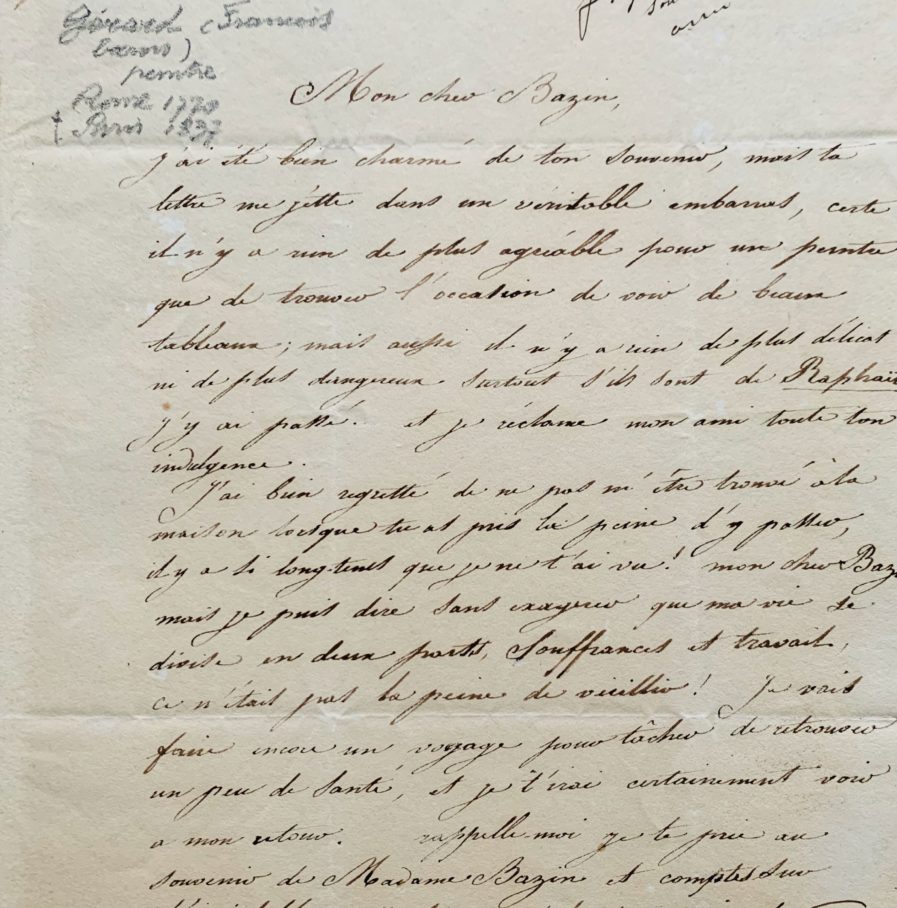 Gérard (François
baron)
peintre
Rome 1770
† Paris 1837
Mon cher Bazin,
j'ai été bien charmé de ton souvenir, mais ta
lettre me jette dans un véritable embarras, certe
il n'y a rien de plus agréable pour un peintre
que de trouver l'occasion de voir de beaux
tableaux; mais aussi il n'y a rien de plus délicat
ni de plus dangereux surtout s'ils sont de Raphaë
j'y ai passé. et je réclame mon ami toute ton
indulgence.
J'ai bien regretté de ne pas m'être trouvé à la
maison lorsque tu as pris la peine d'y passer,
il y a si long-tems que je ne t'ai vu! mon cher Baz
mais je puis dire sans exagerer que ma vie se
divise en deux parts, Souffrances et travail,
ce n'était pas la peine de vieillir! Je vais
faire encore un voyage pour tâcher de retrouver
un peu de santé, et je t'irai certainement voir
a mon retour. rappelle-moi je te prie au
souvenir de Madame Bazin et comptes sur